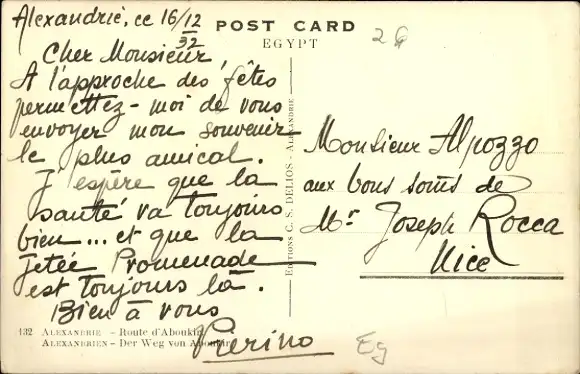 Alexandrie, ce 16/12/32
POST CARD
EGYPT
2G
Cher Monsieur,
A l'approche des fêtes
permettez-moi de vous
envoyer mon souvenir
le plus amical.
J'espère que la
santé va toujours
bien... et que la
Jetée Promenade
est toujours là.
Bien à vous
Pierino
EDITIONS C. S. DELIOS - ALEXANDRIE
Monsieur Alpozzo
aux bons soins de
Mr Joseph Rocca
Nice
132 ALEXANDRIE - Route d'Aboukir
ALEXANDRIEN - Der Weg von Aboukir
Eg